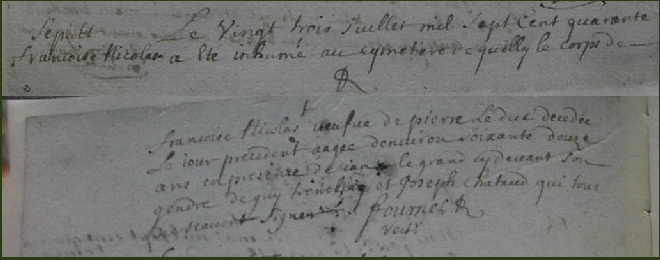 Sepult Le Vingt trois Juillet mil Sept Cent quarante
francoise Nicolas a Eté inhumé au cymetiere de quilly le corps de
francoise Nicolas veufve de pierre Le duc decedee
Le iour precedent aagee denuiron soixante douze
ans en presence de ian le grand cydevant son
gendre de guy et Joseph chataud qui tous
ne scauent signer fournier
Vect